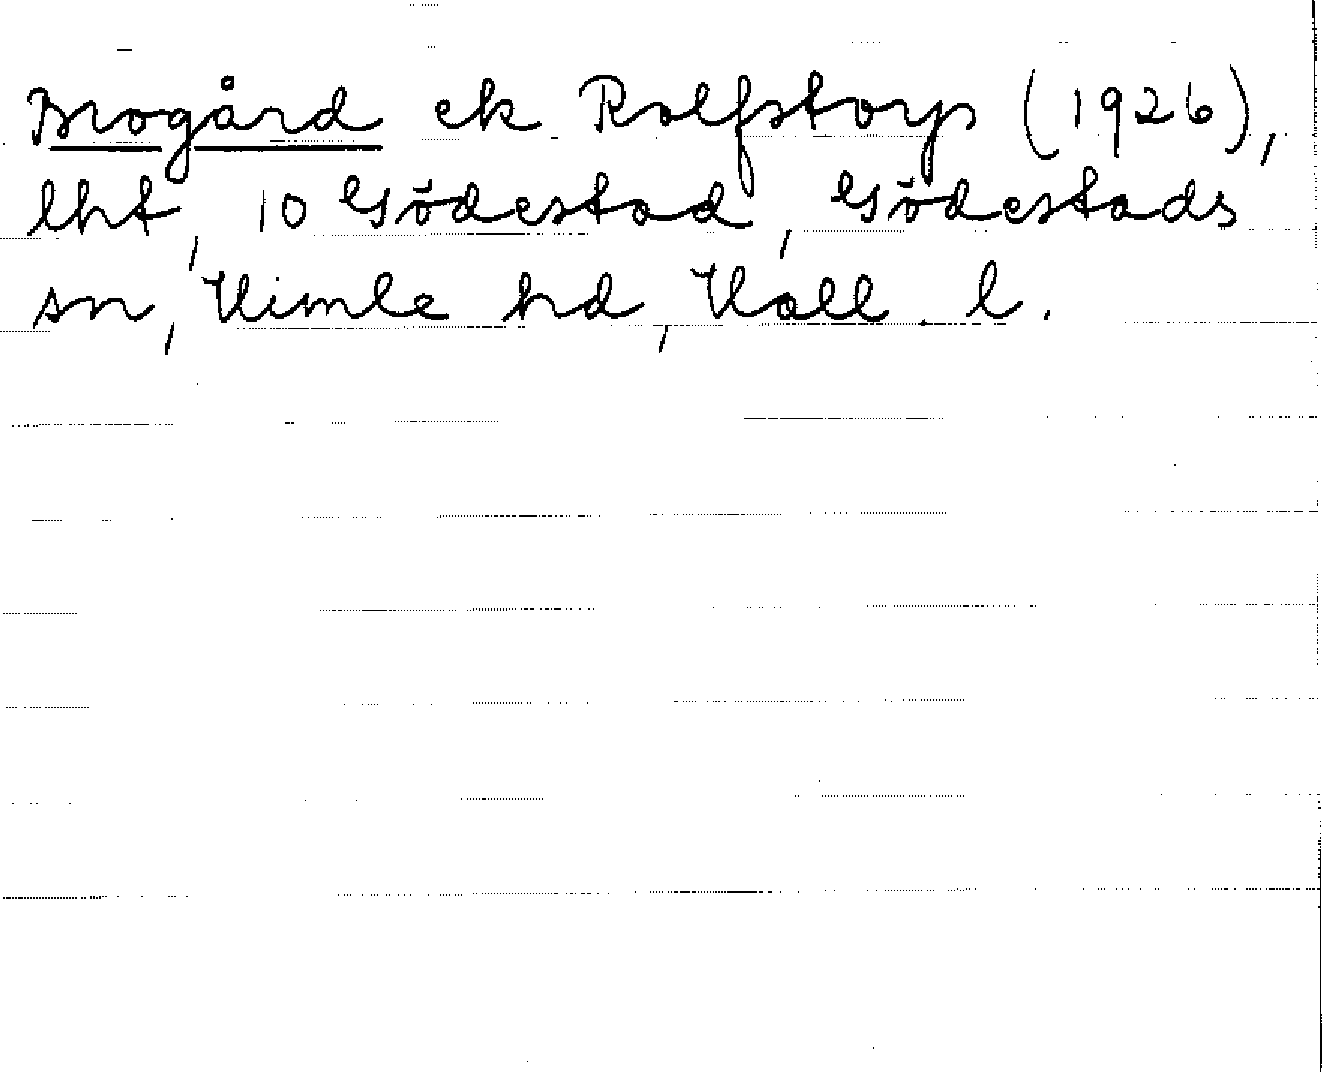 Brogård ek Rolfstorp (1926),
lht, 10 Gödestad, Gödestads
sn, Himle hd, Hall. l.